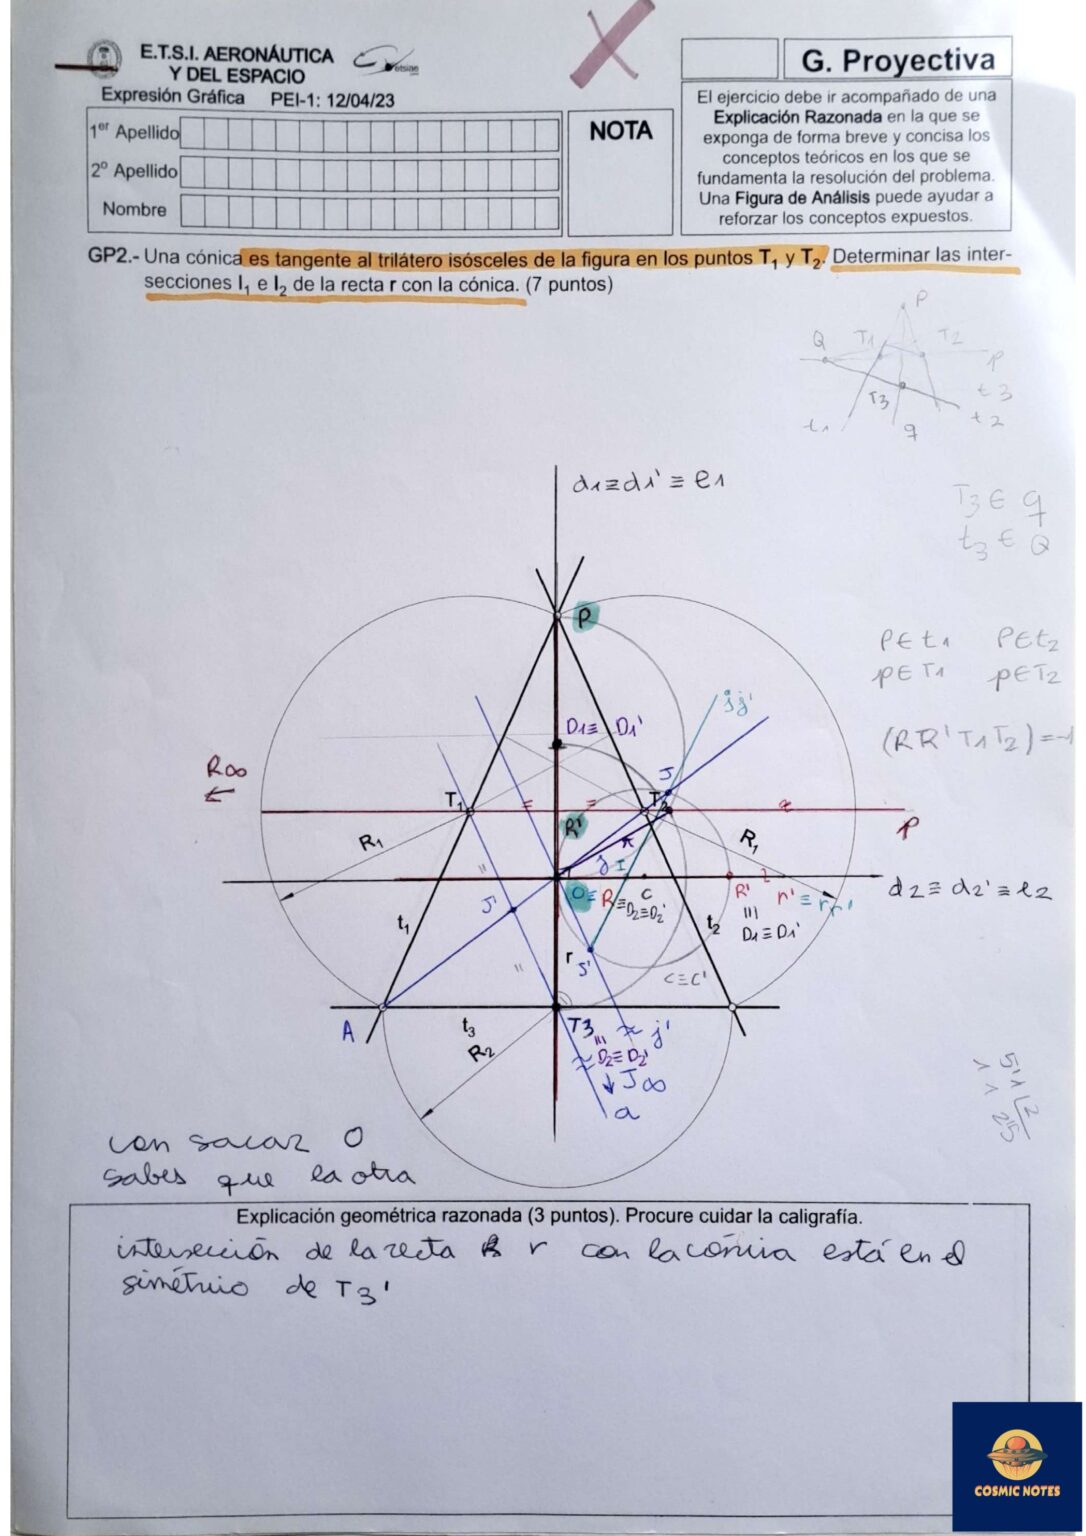 E.T.S.I. AERONÁUTICA
Y DEL ESPACIO
Expresión Gráfica PEI-1: 12/04/23
etsiae
1er Apellido
2º Apellido
Nombre
NOTA
G. Proyectiva
El ejercicio debe ir acompañado de una
Explicación Razonada en la que se
exponga de forma breve y concisa los
conceptos teóricos en los que se
fundamenta la resolución del problema.
Una Figura de Análisis puede ayudar a
reforzar los conceptos expuestos.
GP2.- Una cónica es tangente al trilátero isósceles de la figura en los puntos T1 y T2. Determinar las inter-
secciones I1 e I2 de la recta r con la cónica. (7 puntos)
P
Q T1 T2
P
T3 t3
t1 q t2
d1≡d1' ≡ e1
T3 ∈ q
t3 ∈ Q
P
P∈t1 P∈t2
p∈T1 p∈T2
(RR'T1T2)=-1
jj'
D1≡ D1'
R∞
J
T1 T2
p
R'
R1 R1
O≡ R≡D2≡D2'
C
R' r' ≡ rr'
d2 ≡ d2' ≡ e2
D1≡D1'
t1 t2
r J'
C≡C'
A
t3 T3 j'
R2 D2≡ D2'
↓ J∞
a
con sacar O
sabes que la otra
Explicación geométrica razonada (3 puntos). Procure cuidar la caligrafía.
intersección de la recta r con la cónica está en el
simétrico de T3'
COSMIC NOTES